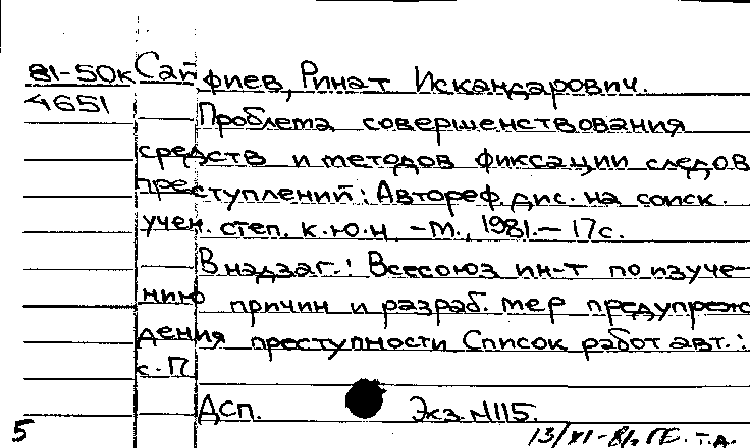 81-50к Сайфиев, Ринат Искандарович.
4651
Проблема совершенствования
средств и методов фиксации следов
преступлений: Автореф. дис. на соиск.
учен. степ. к.ю.н. -М., 1981.- 17с.
В надзаг.: Всесоюз ин-т по изуче-
нию причин и разраб. мер предупреж
дения преступности Список работ авт.:
с. 17
ДСП. Экз. N115.
5
13/XI-81г.